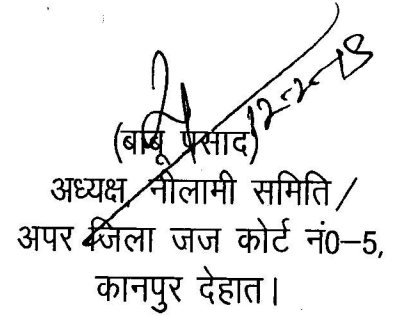 12-2-19
(बाबू प्रसाद)
अध्यक्ष, नीलामी समिति /
अपर जिला जज कोर्ट नं0-5,
कानपुर देहात।